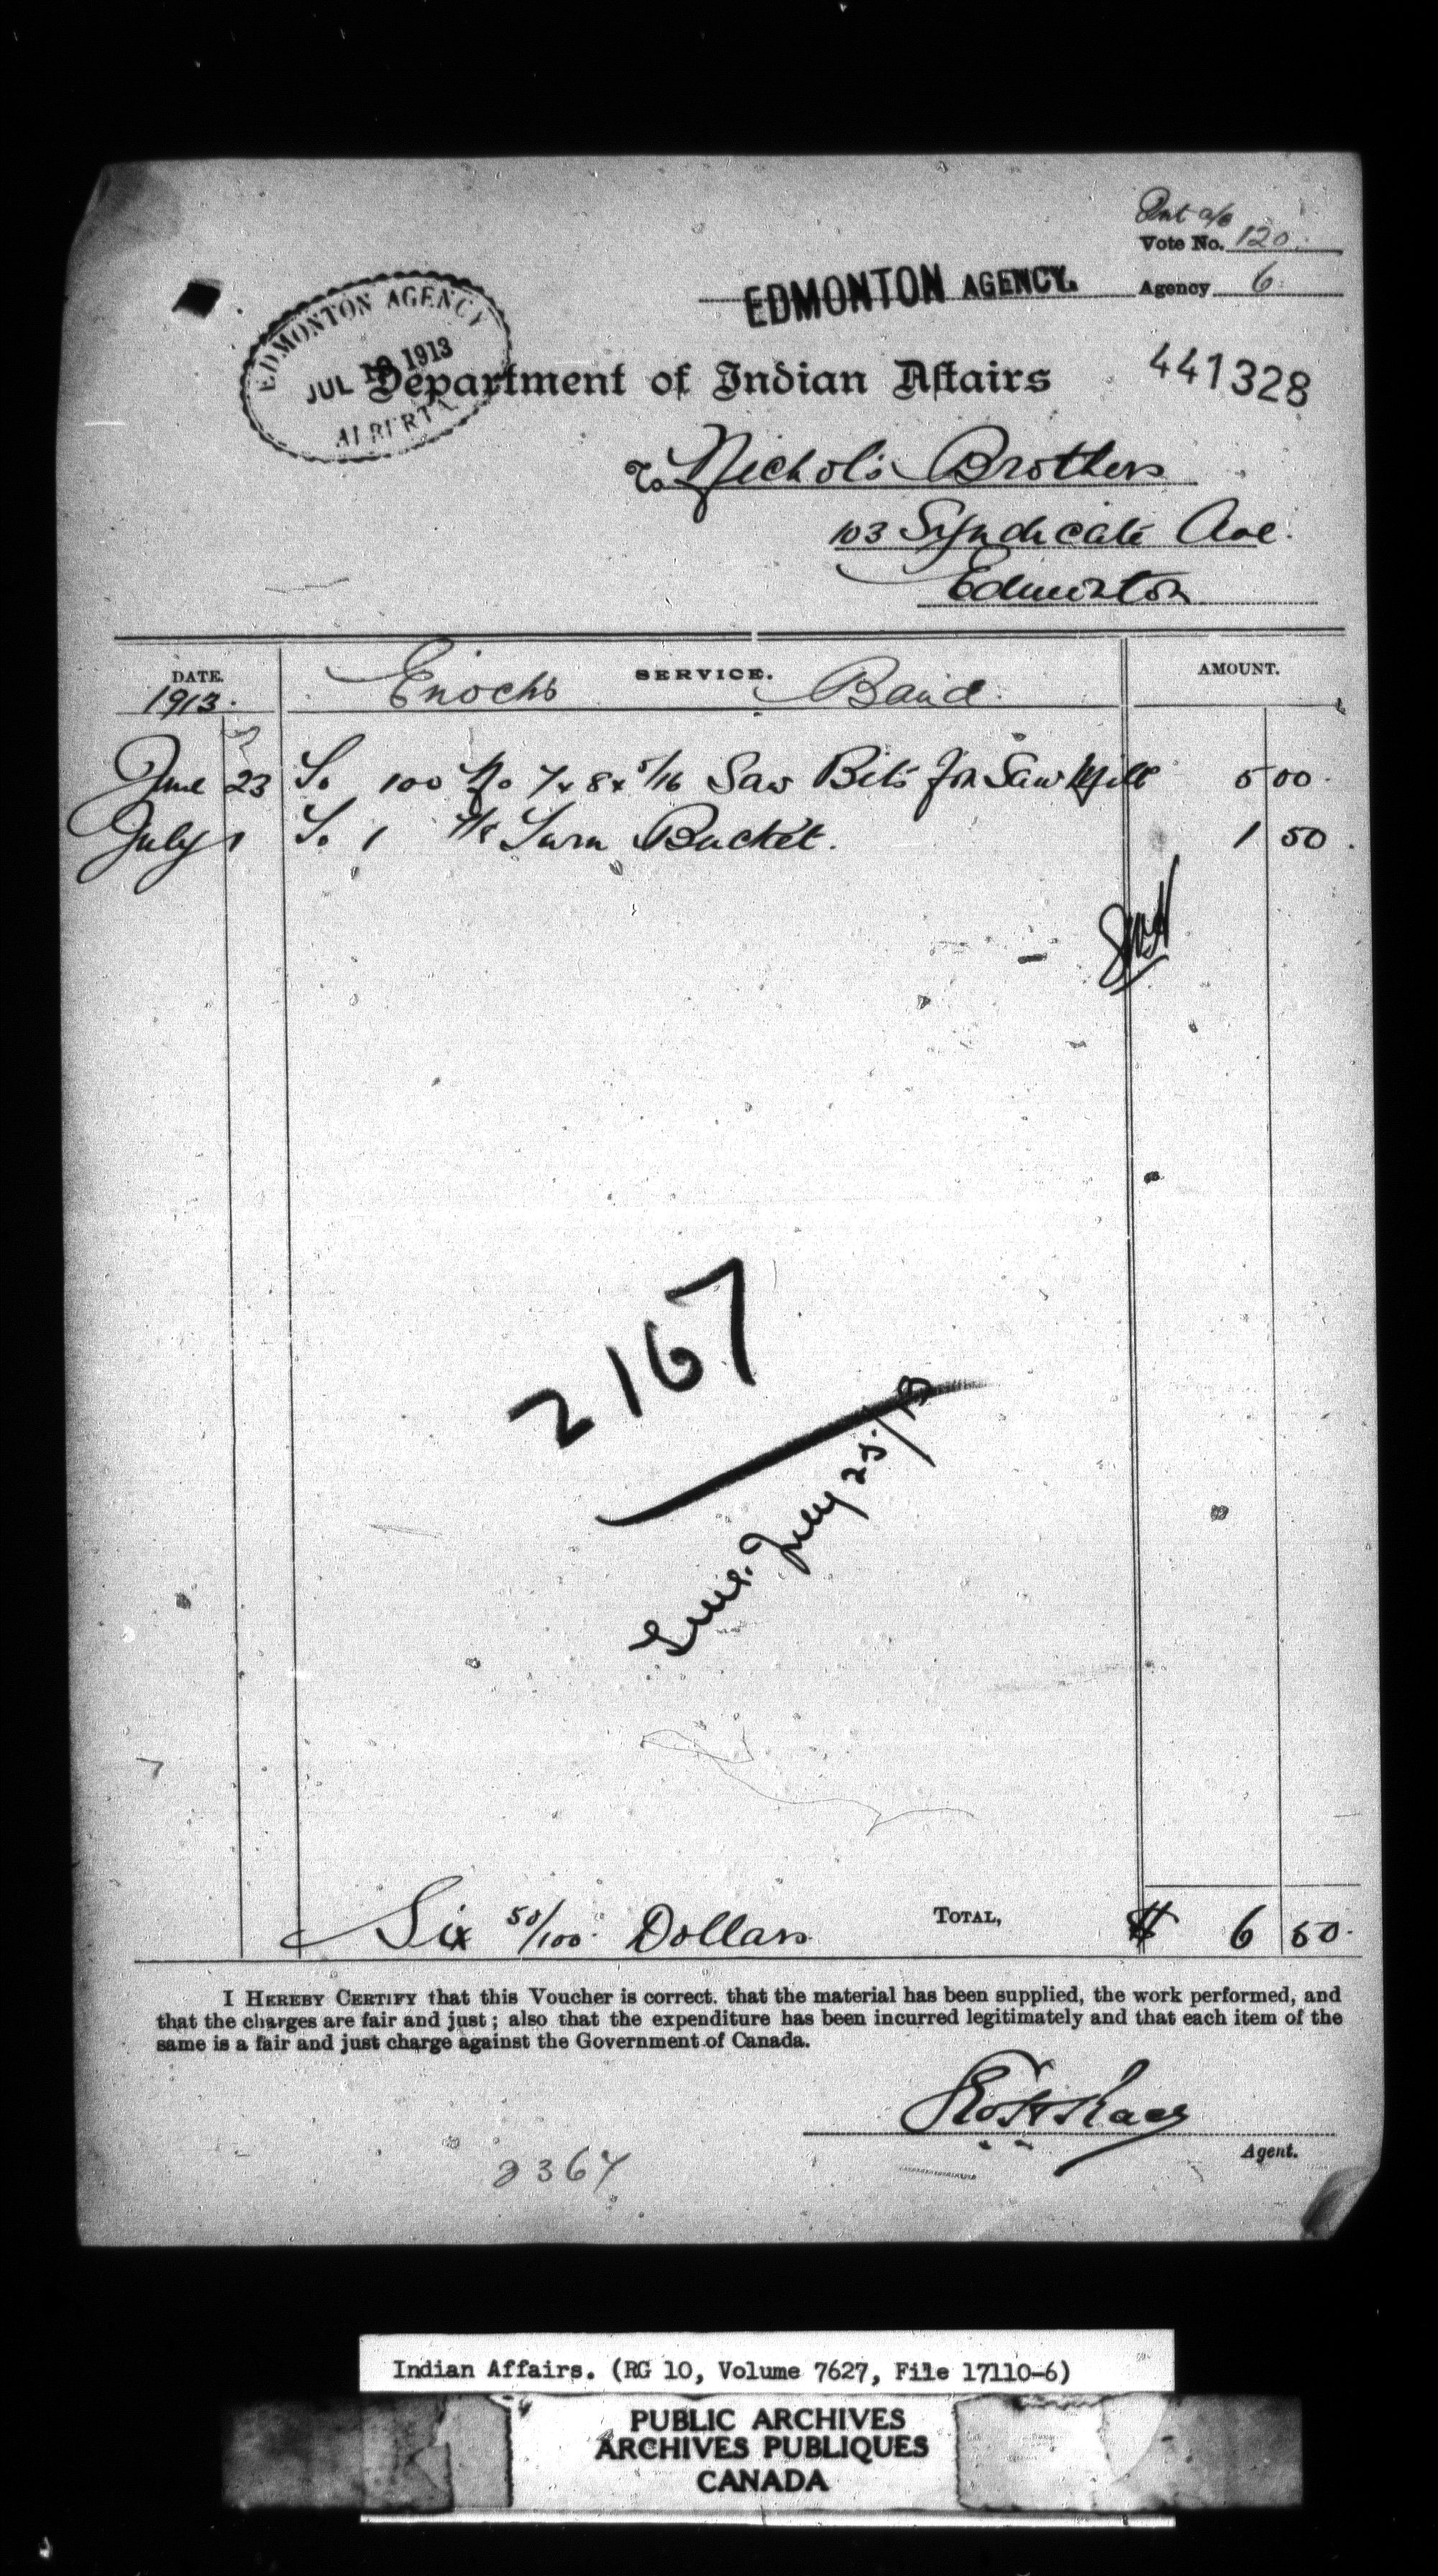 Int a/c
Vote No. 120.
EDMONTON AGENCY.
Agency 6
EDMONTON AGENCY
JUL 1913
ALBERTA
Department of Indian Affairs
441328
To Nichols Brothers
103 Syndicate Ave.
Edmonton
DATE. SERVICE. AMOUNT.
1913. Enochs Band.
June 23 To 100 No 7 x 8 x 5/16 Saw Bits for Saw Mill 5 00.
July 1 To 1 Buckét. 1 50.
2167
July 25/13
Six 50/100 Dollars TOTAL, $ 6 50.
I HEREBY CERTIFY that this Voucher is correct. that the material has been supplied, the work performed, and
that the charges are fair and just; also that the expenditure has been incurred legitimately and that each item of the
same is a fair and just charge against the Government of Canada.
Agent.
2364
Indian Affairs. (RG 10, Volume 7627, File 17110-6)
PUBLIC ARCHIVES
ARCHIVES PUBLIQUES
CANADA